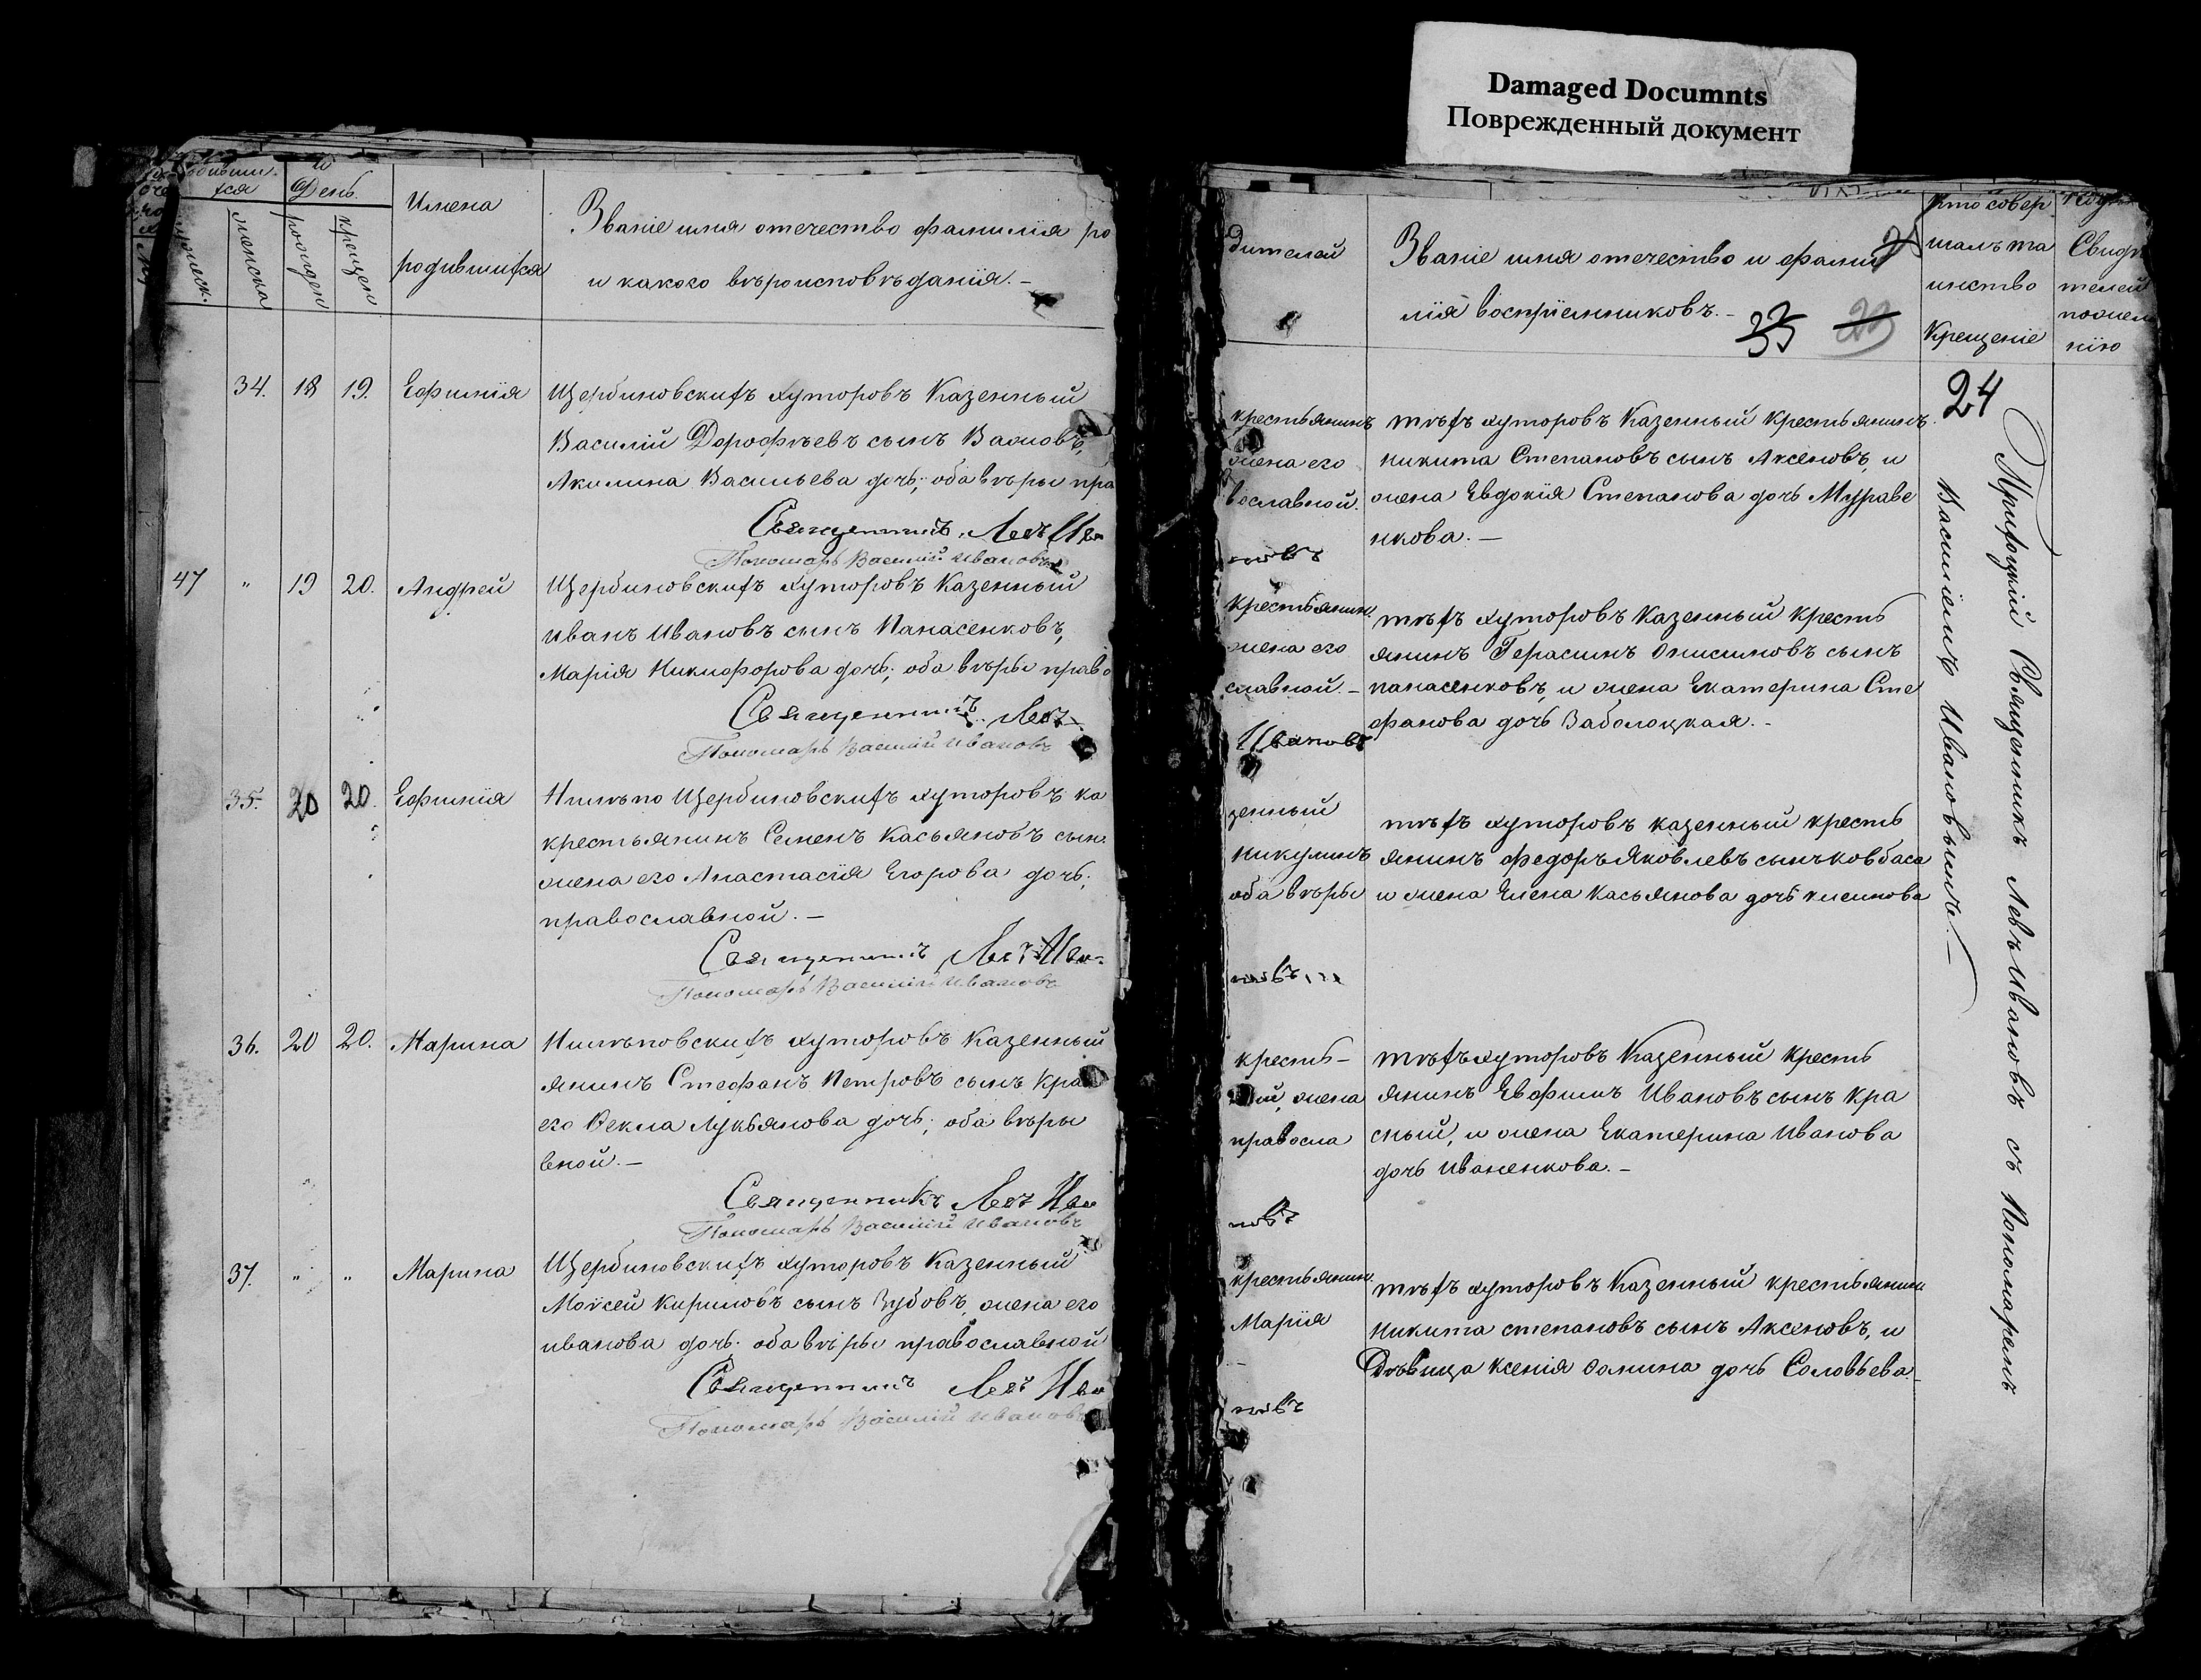 Damaged Documnts
Поврежденный документ
День.
Имена
родившихся
женска
рожден
крещен
Званіе имя отечество фамилія ро
и какого вѣроисповѣданія. –
34. 18 19. Ефимія
Щербиновскихъ хуторовъ Казенный
Василій Дорофѣевъ сынъ
Акилина Васильева дочь; оба вѣры пра
Священникъ Левъ Ива
Пономарь Василій Ивановъ
47 " 19 20. Андрей
Щербиновскихъ хуторовъ Казенный
Иванъ Ивановъ сынъ Панасенковъ,
Марія Никифорова дочь; оба вѣры право
Священникъ Левъ
Пономарь Василій Ивановъ
35. 20 20. Ефимія
Щербиновскихъ хуторовъ ка
крестьянинъ Семенъ Касьяновъ сынъ
жена его Анастасія Егорова дочь;
православной. –
Священникъ Левъ Ива
Пономарь Василій Ивановъ
36. 20 20. Марина
хуторовъ Казенный
янинъ Стефанъ Петровъ сынъ Кра
его Ѳекла Лукьянова дочь; оба вѣры
вной. –
Священникъ Левъ Ива
Пономарь Василій Ивановъ
37. " " Марина
Щербиновскихъ хуторовъ Казенный
Моѵсей Кириловъ сынъ Зубовъ, жена его
иванова дочь. оба вѣры православной
Священникъ Левъ Ива
Пономарь Василій Ивановъ
дителей
Званіе имя отечество и фами
лія воспріемниковъ. –
Кто совер
шалъ та
инство
Крещеніе
Свидѣ
телей
по желе
нію
24
крестьянинъ
жена его
вославной.
новъ
тѣхъ хуторовъ Казенный Крестьянинъ
никита Степановъ сынъ Аксеновъ, и
жена Евдокія Степанова дочь Мураве
нкова. –
крестьянин.
жена его
славной. –
Ивановъ
тѣхъ хуторовъ Казенный Кресть
янинъ Герасимъ Онисимовъ сынъ
панасенковъ, и жена Екатерина Сте
фанова дочь Заболоцкая. –
зенный
никулинъ
оба вѣры
новъ
тѣхъ хуторовъ казенный кресть
янинъ федоръ Яковлевъ сынъ ковбаса
и жена Елена Касьянова дочь
кресть –
жена
правосла
новъ
тѣхъ хуторовъ Казенный Кресть
янинъ Евфимъ Ивановъ сынъ Кра
сный, и жена Екатерина Иванова
дочь Иваненкова. –
крестьянин.
Марія
новъ
тѣхъ хуторовъ Казенный крестьянинъ
Никита степановъ сынъ Аксеновъ, и
Дѣвица Ксенія дочь Соловьева. –
Приходскій Священникъ Левъ Ивановъ съ Пономаремъ
Василіемъ Ивановымъ. –